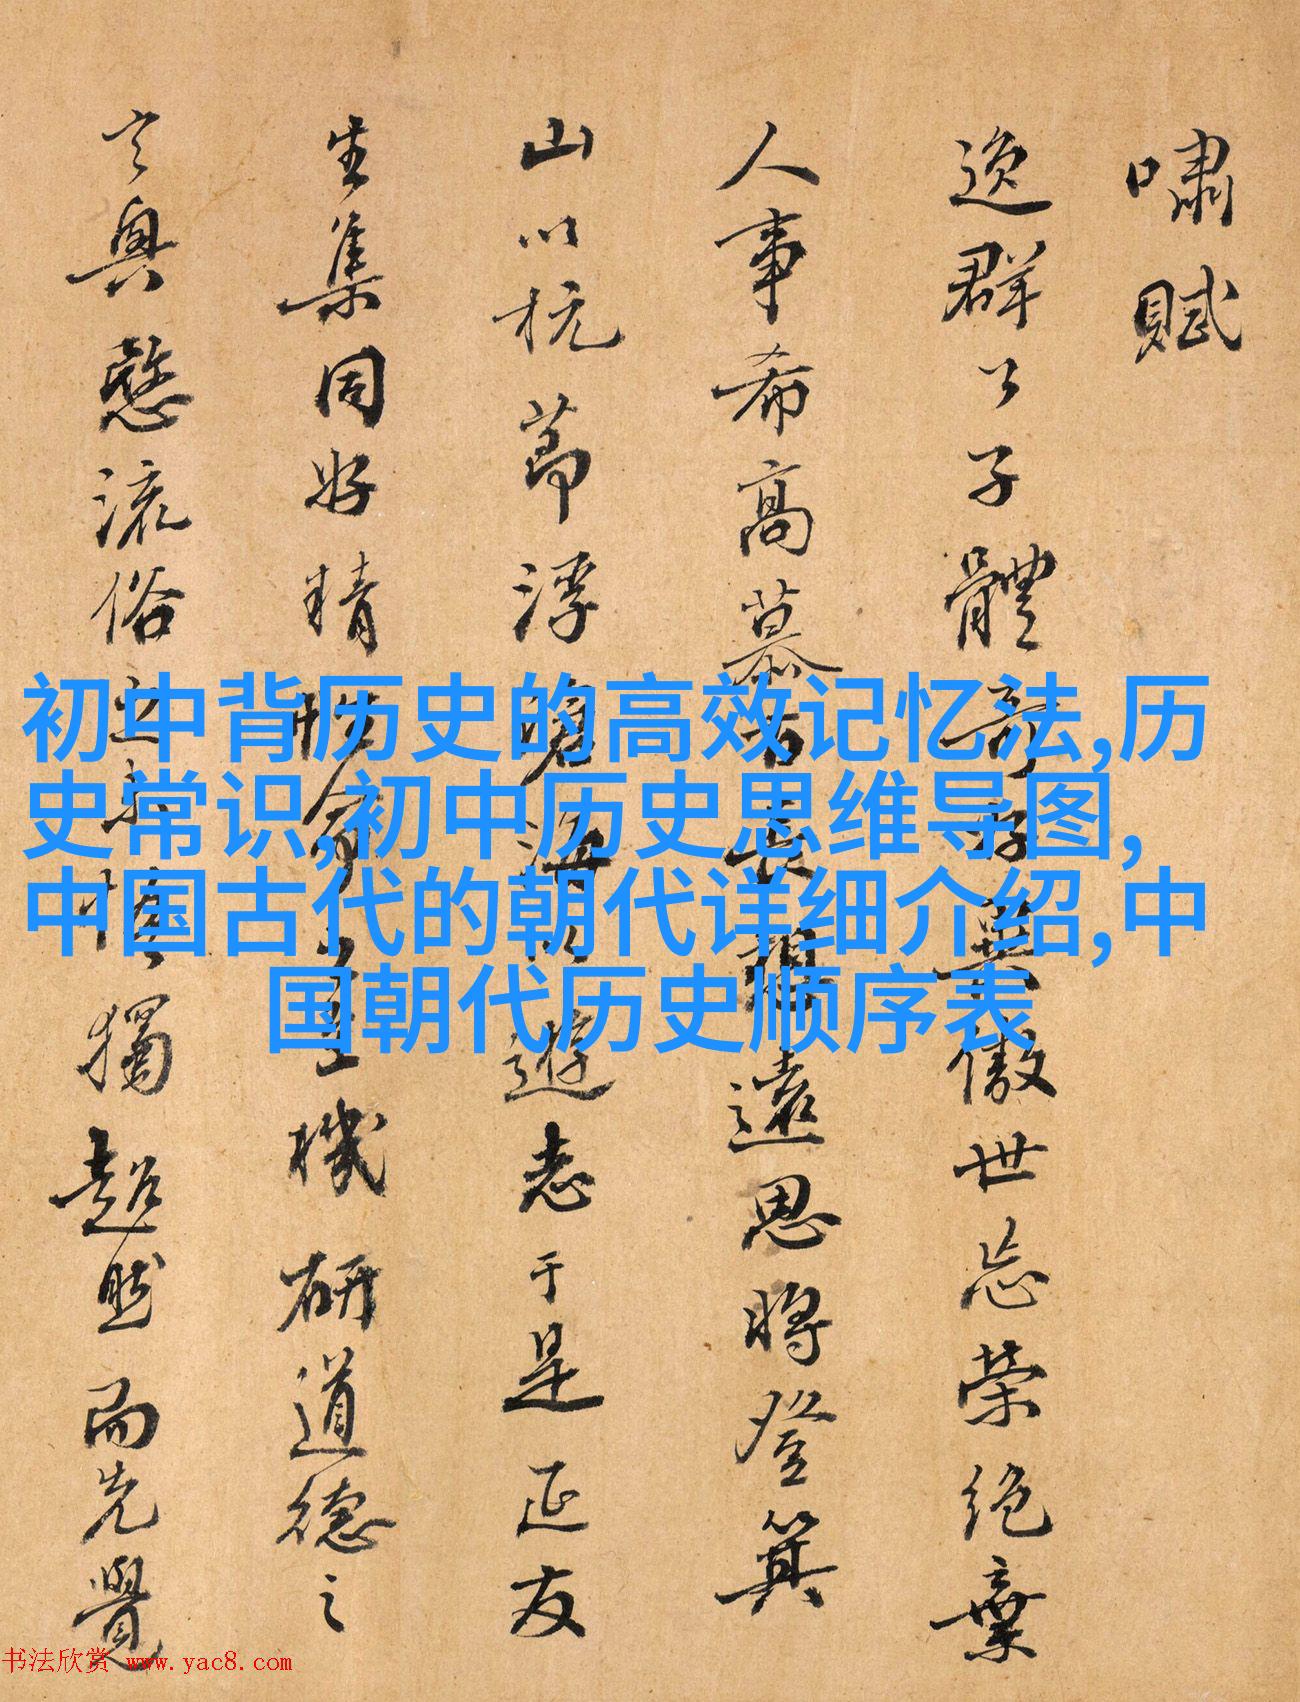 嘯賦
逸群公子體奇好異傲世忘榮絕棄
人事希高慕古長想遠思將登箕
山以抗節浮滄海以遊志于是延友
生集同好精性命之至機研道德之
玄奥愍流俗之未悟獨超然而先覺
初中背历史的高效记忆法,历
史常识,初中历史思维导图,
中国古代的朝代详细介绍,中
国朝代历史顺序表
书法欣赏 www.yac8.com